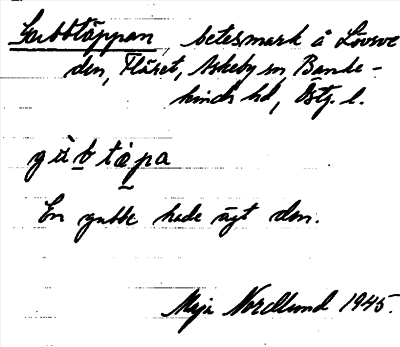 Gubbtäppan, betesmark å Lövsve
den, Fläret, Askeby sn, Banke-
kinds hd, Östg. l.
gùbtàpa
En gubbe hade ägt den.
Maja Nordlund 1945.